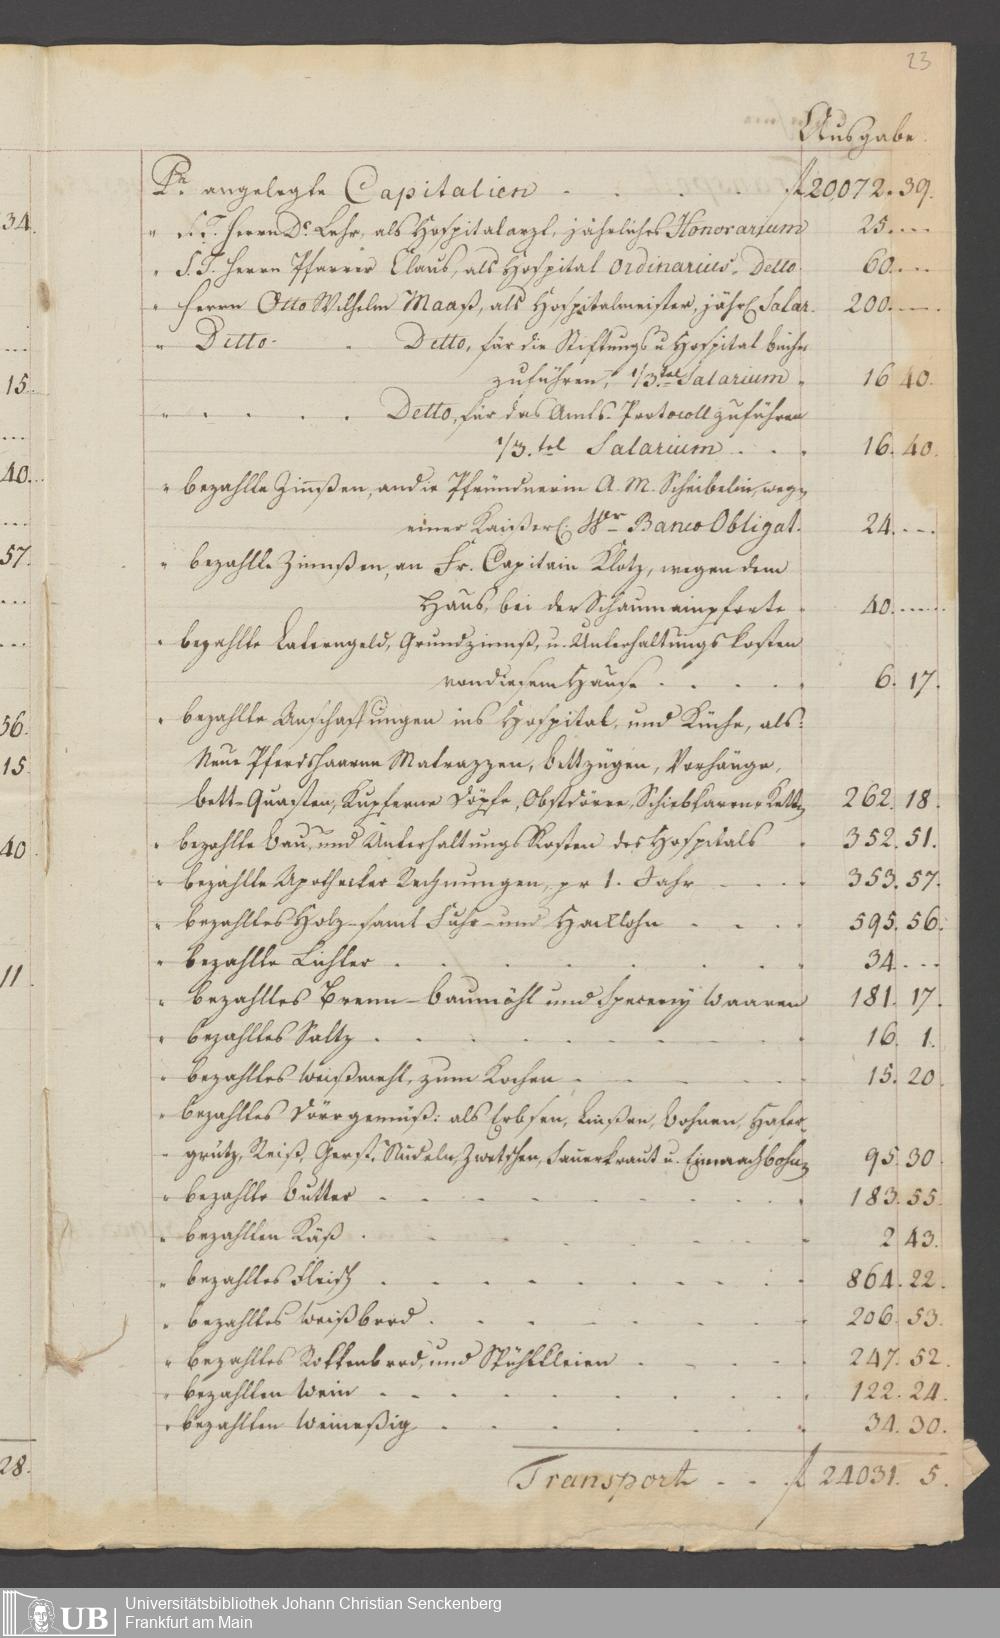 23
Ausgabe.
34.
15.
40.
57.
56.
15.
40
11.
28.
Pr. angelegte Capitalien . . . . . f 20,072. 39.
" S. T. Herrn Dr. Lehr, als Hospitalarzt, jährliches Honorarium 25. ...
" S. T. Herrn Pfarrer Claus, als Hospital Ordinarius. Detto 60. ...
" Herrn Otto Wilhelm Maaß, als Hospitalmeister, jährl. Salar. 200. ...
" Ditto - Detto, für die Stiftungs u Hospital bücher
zuführen, 1/3.tel Salarium " 16 40.
" . . . . Detto, für das Amts-Protocoll zuführen
1/3.tel Salarium . . . 16. 40.
" bezahlte Zinnßen, an die Pfründnerin A. M. Scheibelin, wegen
einer Kaißerl. Wr. Banco Obligat. 24. ...
" bezahlte Zinnßen, an Fr. Capitain Klotz, wegen dem
Haus, bei der Schaumainpforte . 40. ...
" bezahlte Laterngeld, Grundzinnß, u. Unterhaltungs kosten
von diesem Hause . . . . . 6. 17.
" bezahlte Anschaffungen ins Hospital, und Küche, als:
Neue Pferdshaarne Matrazzen, bettzügen, Vorhänge,
bett-Quasten, Kupferne Döpfe, Obstdörre, Schiebkarrn, Ketten 262. 18.
" bezahlte bau, und Unterhaltungs Kosten des Hospitals . 352. 51.
" bezahlte Apothecker Rechnungen, pr 1. Jahr . . . . 353. 57.
" bezahltes Holz- samt Fuhr- und Hacklohn . . . . 595. 56.
" bezahlte Lichter . . . . . . . . 34. ...
" bezahltes Brenn- baumöhl und Specerey Waaren 181. 17.
" bezahltes Saltz . . . . . . . . . 16. 1.
" bezahltes Weißmehl, zum Kochen . . . . . 15. 20.
" bezahltes Dörrgemüß: als Erbsen, Linßen, bohnen, Hafer-
grütz, Reiß, Gerst, Nudeln, Zwetschen, Sauerkraut u. Einmachbohnen 95 30
" bezahlte butter . . . . . . . . 183. 55.
" bezahlten Käß . . . . . . . . 2 43.
" bezahltes Fleisch . . . . . . . . 864. 22.
" bezahltes Weißbrod . . . . . . . 206. 53.
" bezahltes Rokkenbrod, und Spühlkleien . . . . 247. 52.
" bezahlten Wein . . . . . . . . 122. 24.
" bezahlten Weineßig . . . . . . . 34. 30.
Transport . . f 24031. 5.
UB
Universitätsbibliothek Johann Christian Senckenberg
Frankfurt am Main